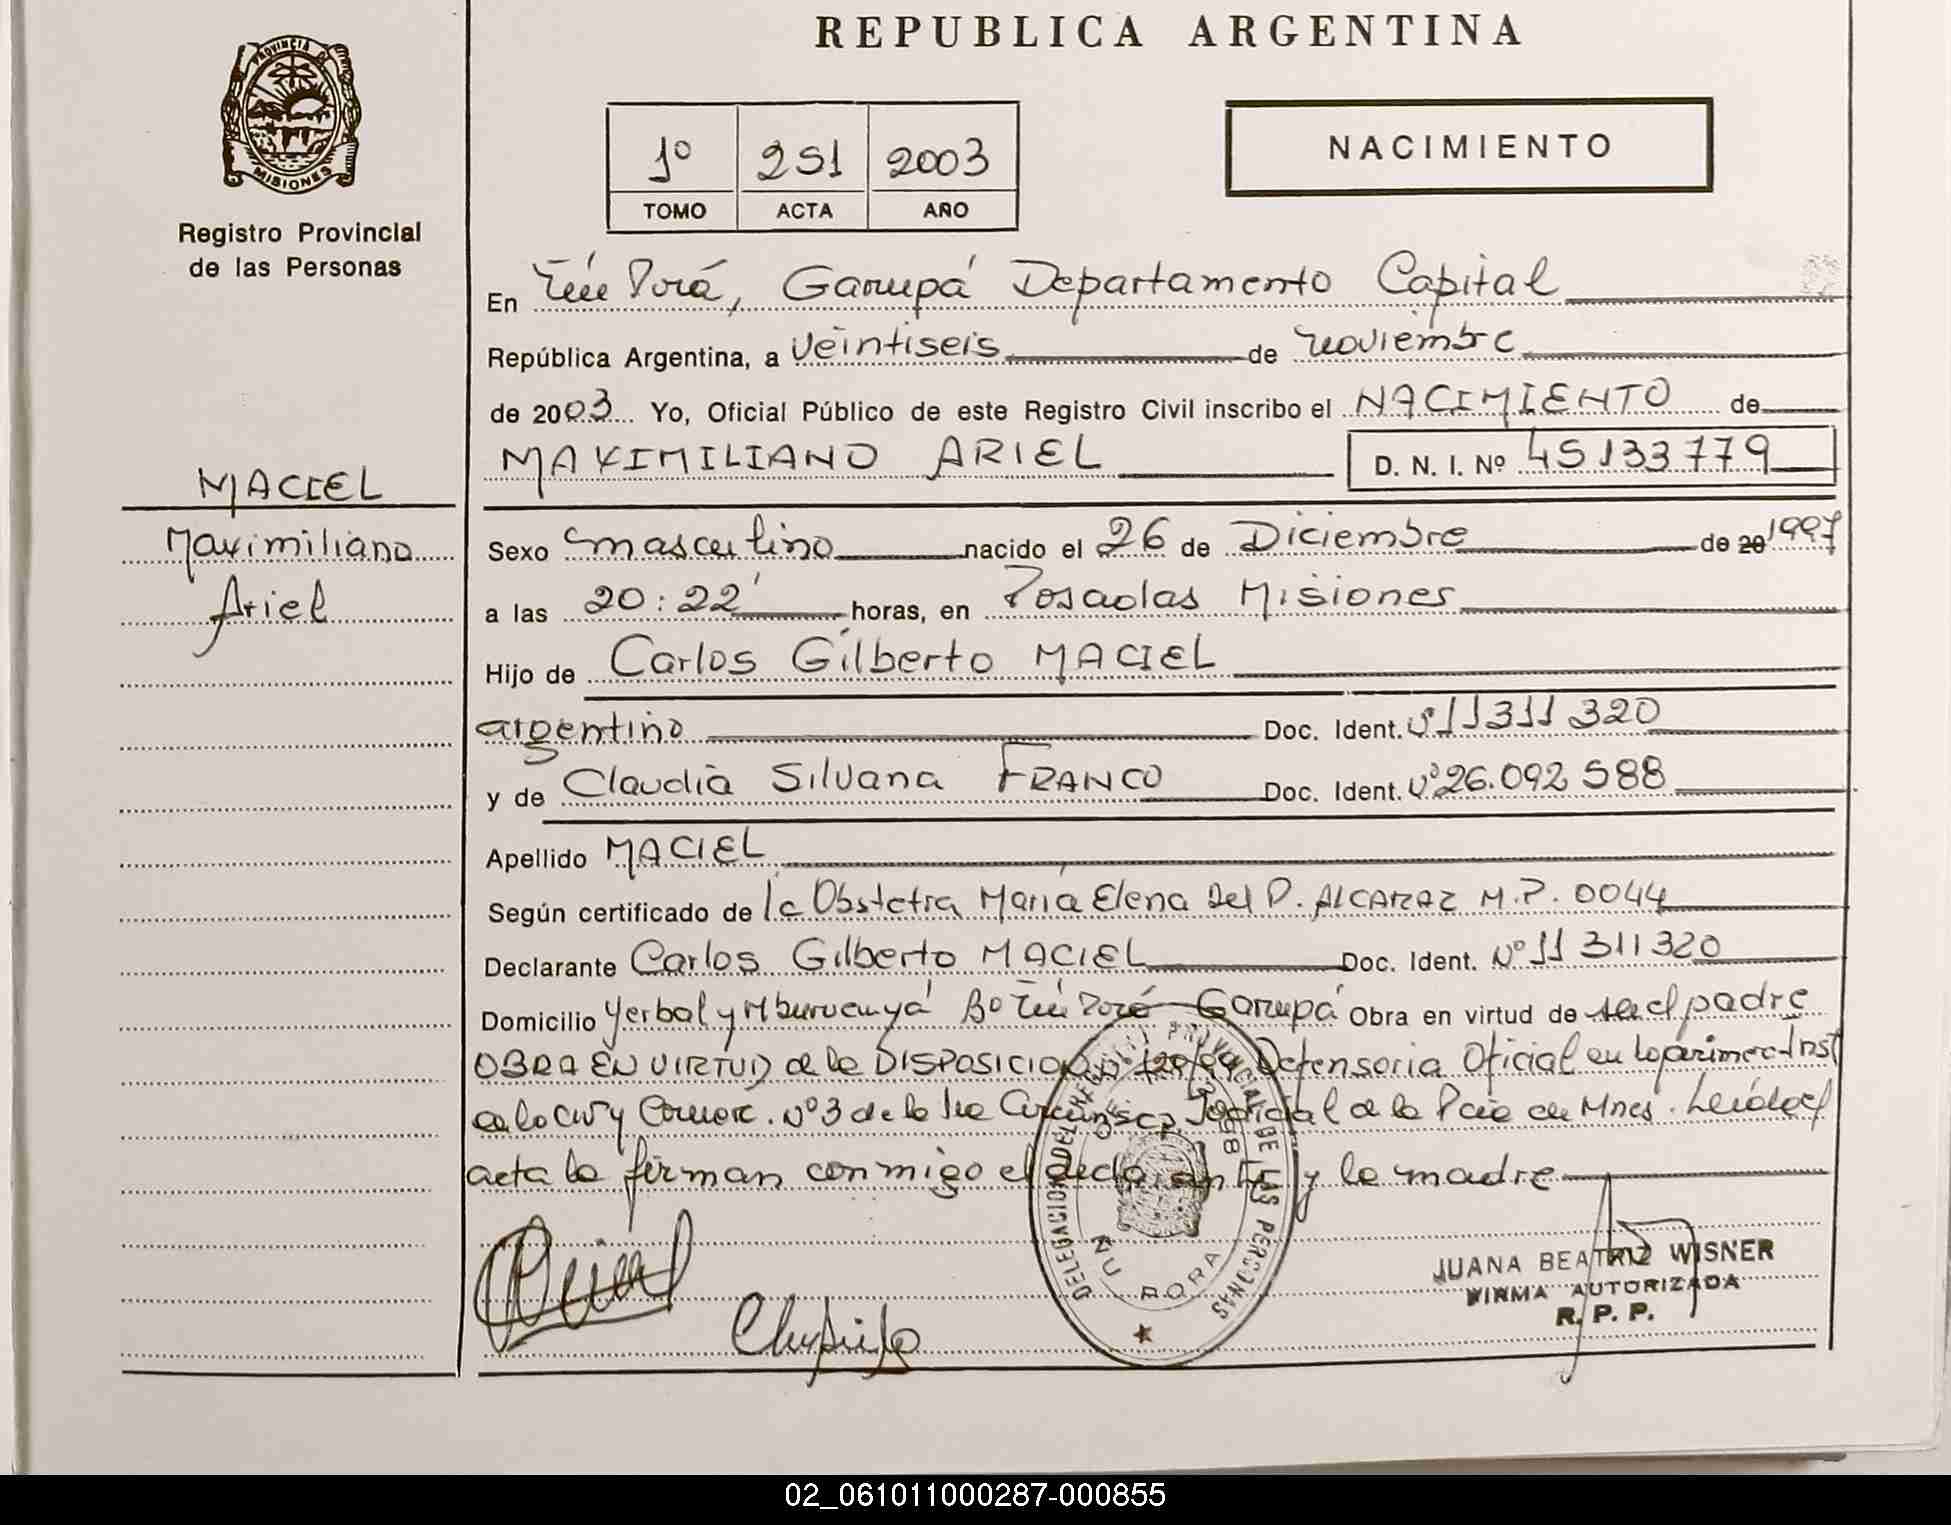 REPUBLICA ARGENTINA
PROVINCIA DE MISIONES
Registro Provincial
de las Personas
1º 251 2003
TOMO ACTA AÑO
NACIMIENTO
En Ñu Porá, Garupá Departamento Capital
República Argentina, a veintiseis de noviembre
de 2003 Yo, Oficial Público de este Registro Civil inscribo el NACIMIENTO de
MAXIMILIANO ARIEL D. N. I. Nº 45133779
MACIEL
Maximiliano
Ariel
Sexo masculino nacido el 26 de Diciembre de 20 1997
a las 20:22' horas, en Posadas Misiones
Hijo de Carlos Gilberto MACIEL
argentino Doc. Ident. Nº 11311320
y de Claudia Silvana FRANCO Doc. Ident. Nº 26.092588
Apellido MACIEL
Según certificado de la Obstetra María Elena Del P. ALCARAZ M.P. 0044
Declarante Carlos Gilberto MACIEL Doc. Ident. Nº 11311320
Domicilio Yerbal y Mburucuyá Bo Ñu Porá Garupá Obra en virtud de ser el padre
OBRA EN VIRTUD de la DISPOSICION Defensoria Oficial en lo primera Inst
en lo Civ y Comerc. Nº 3 de la 1ra Circunsc. Judicial de la Pcia de Mnes. Leída el
acta la firman conmigo el declarante y la madre
DELEGACION DEL REGISTRO PROVINCIAL DE LAS PERSONAS
ÑU PORA
JUANA BEATRIZ WISNER
FIRMA AUTORIZADA
R. P. P.
02_061011000287-000855